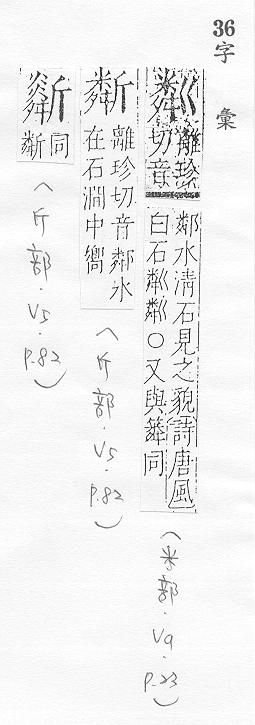 36字彙
粼離珍切音鄰水清石見之貌詩唐風
白石粼粼○又與同
(米部.V9.P.23)
斴離珍切音鄰水
在石澗中嚮
(斤部.V5.P.82)
同斴
(斤部.V5.P.82)